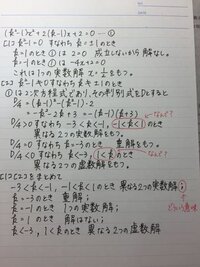 (k²-1)x²+2(k-1)x+2=0 ―①
[1] k²-1=0 すなわち k=±1のとき
k=1のとき ①は 2=0 成立しないから 解なし。
k=-1のとき ①は -4x+2=0
これは1つの実数解 x=1/2をもつ。
[2] k²-1≠0 すなわち k≠±1のとき
①は2次方程式であり、その判別式をDとすると
D/4=(k-1)²-(k²-1)・2
=-k²-2k+3=-(k-1)(k+3)
なんで?
D/4>0 すなわち -3<k<-1, -1<k<1のとき
異なる2つの実数解をもつ。
D/4=0 すなわち k=-3のとき 重解をもつ。
なんで?
D/4<0 すなわち k<-3, 1<kのとき
異なる2つの虚数解をもつ。
[1][2]をまとめて
-3<k<-1, -1<k<1のとき 異なる2つの実数解;
k=-3のとき 重解;
k=-1のとき 1つの実数解;
k=1のとき 解はない;
k<-3, 1<kのとき 異なる2つの虚数解